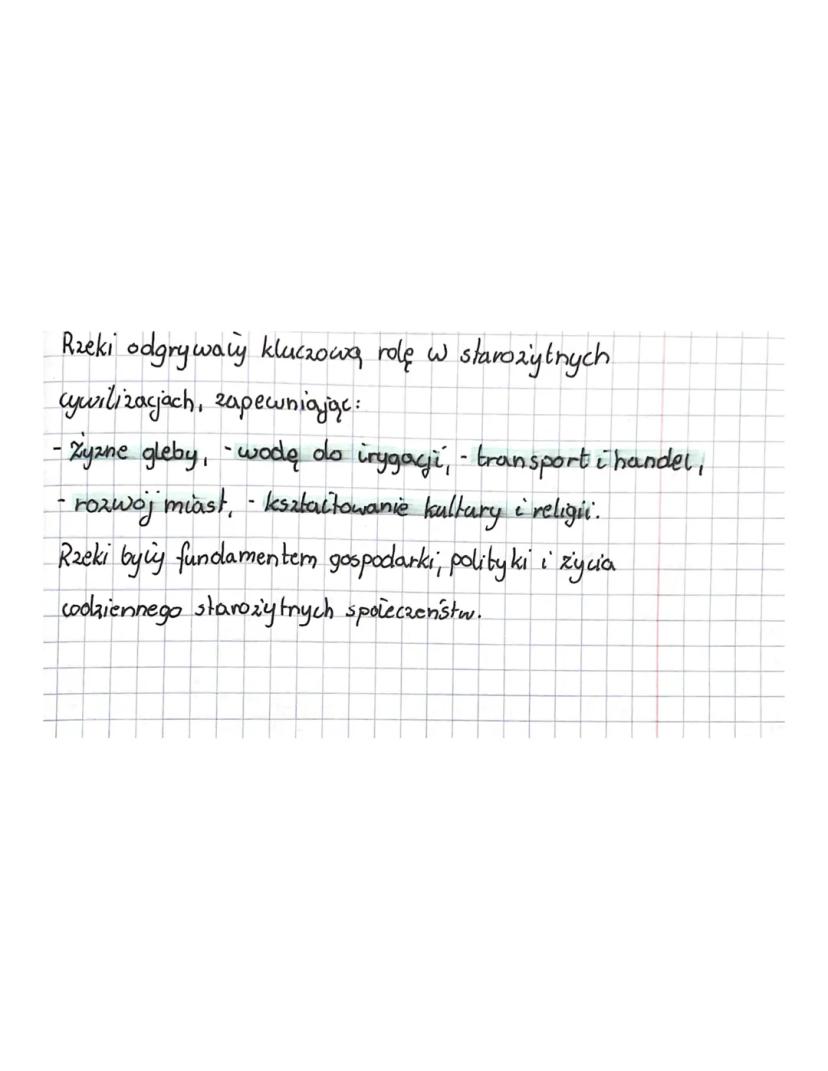 Rzeki odgrywały kluczową rolę w starożytnych
cywilizacjach, zapewniając:
- żyzne gleby, - wodę do irygacji, - transport i handel,
- rozwój miast, - kształtowanie kultury i religii.
Rzeki były fundamentem gospodarki, polityki i życia
codziennego starożytnych społeczeństw.